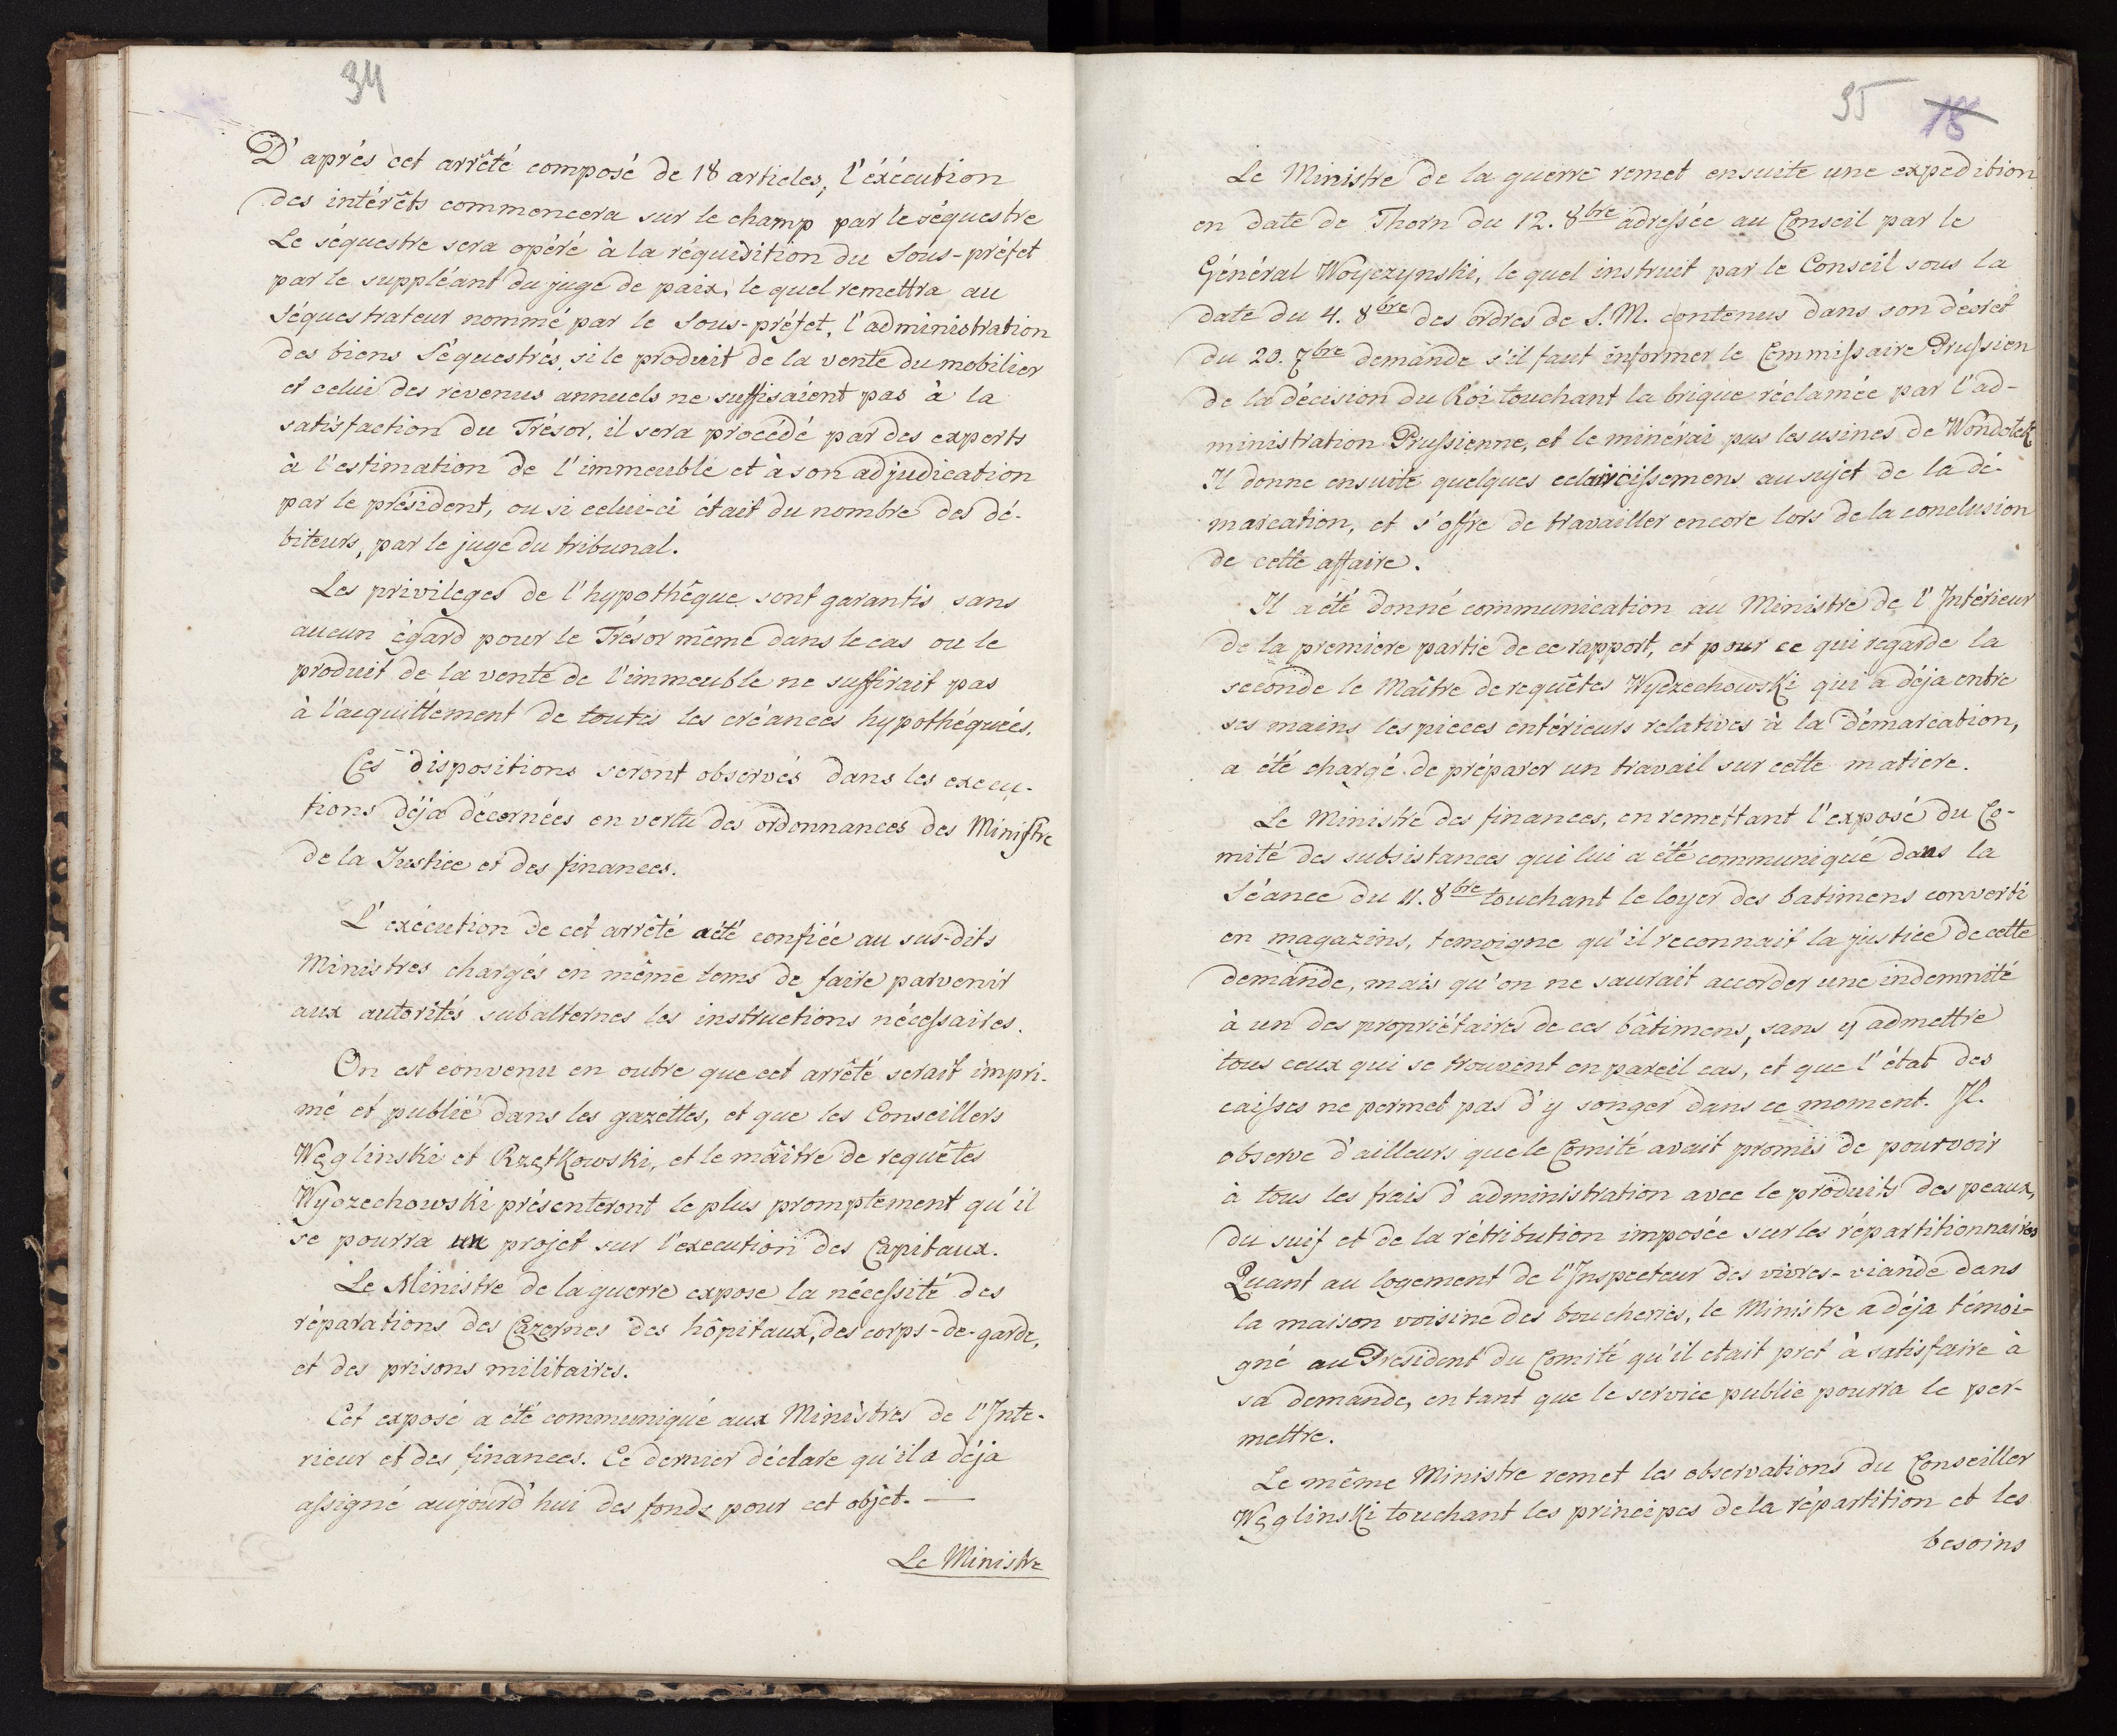 34
D'aprés cet arrêté composé de 18 articles, l'éxécution
des intérêts commencera sur le champ par le séquestre
Le séquestre sera opéré à la réquisition du Sous-préfet
par le suppléant du juge de paix, le quel remettra au
Séquestrateur nommé par le Sous-préfet, l'administration
des biens Séquestrés, si le produit de la vente du mobilier
et celui des revenus annuels ne suffisaient pas à la
satisfaction du Trésor, il sera procédé par des experts
à l'estimation de l'immeuble et à son adjudication
par le président, ou si celui-ci était du nombre des dé-
biteurs, par le juge du tribunal.
Les privileges de l'hypothêque sont garantis sans
aucun égard pour le Trésor même dans le cas ou le
produit de la vente de l'immeuble ne suffirait pas
à l'acquittement de toutes les créances hypothéquées.
Ces dispositions seront observés dans les execu-
tions déja décernées en vertu des ordonnances des Ministre
de la Justice et des finances.
L'exécution de cet arrêté a été confiée au sus-dits
Ministres chargés en même tems de faire parvenir
aux autorités subalternes les instructions nécessaires.
On est convenu en outre que cet arrêté serait impri-
mé et publié dans les gazettes, et que les Conseillers
Węglinski et Rzętkowski, et le maître de requêtes
Wyczechowski présenteront le plus promptement qu'il
se pourra un projet sur l'execution des Capitaux.
Le Ministre de la guerre expose la nécessité des
réparations des Cazernes des hôpitaux, des corps-de-garde,
et des prisons militaires.
Cet exposé a été communiqué aux Ministres de l'Inte-
rieur et des finances. Ce dernier déclare qu'il a déja
assigné aujourd'hui des fonds pour cet objet. —
Le Ministre
35 18
Le Ministre de la guerre remet ensuite une expedition
en date de Thorn du 12. 8bre adressée au Conseil par le
Général Woyczynski, le quel instruit par le Conseil sous la
date du 4. 8bre des ordres de S. M. contenus dans son décret
du 20. 7bre demande s'il faut informer le Commissaire Prussien
de la décision du Roi touchant la brique réclamée par l'ad-
ministration Prussienne, et le minérai pus les usines de Wondotek
Il donne ensuite quelques eclaircissemens au sujet de la dé-
marcation, et s'offre de travailler encore lors de la conclusion
de cette affaire.
Il a été donné communication au Ministre de l'Intérieur
de la premiere partie de ce rapport, et pour ce qui regarde la
seconde le Maître de requêtes Wyczechowski qui a déja entre
ses mains les pieces entérieurs relatives à la démarcation,
a été chargé de préparer un travail sur cette matiere.
Le Ministre des finances, en remettant l'exposé du Co-
mité des subsistances qui lui a été communiqué dans la
Séance du 11. 8bre touchant le loyer des batimens converti
en magazins, temoigne qu'il reconnait la justice de cette
demande, mais qu'on ne saurait accorder une indemnité
à un des propriétaires de ces bâtimens, sans y admettre
tous ceux qui se trouvent en pareil cas, et que l'état des
caisses ne permet pas d'y songer dans ce moment. Il
observe d'ailleurs que le Comité avait promis de pourvoir
à tous les frais d'administration avec le produits des peaux,
du suif et de la rétribution imposée sur les répartitionnaires
Quant au logement de l'Inspecteur des vivres-viande dans
la maison voisine des boucheries, le Ministre a déja témoi-
gné au President du Comité qu'il etait pret à satisfaire à
sa demande, en tant que le service public pourra le per-
mettre.
Le même Ministre remet les observations du Conseiller
Węglinski touchant les principes de la répartition et les
besoins